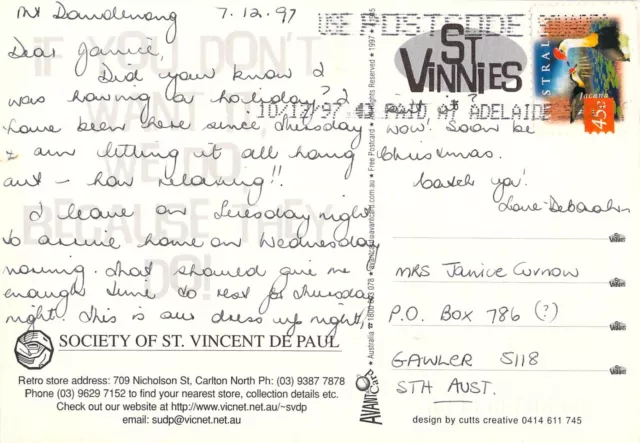 Mt Dandenong 7.12.97
Dear Janice,
Did you know I
was having a holiday? I
have been here since Thursday
& am letting it all hang
out - how relaxing!!
I leave on Tuesday night
to arrive home on Wednesday
morning. That should give me
enough time to rest for Thursday
night. This is our dress up night,
isn't it?
Wow! Soon be
Christmas.
Catch ya!
Love Deborah
USE POSTCODE
10/12/97 PAID AT ADELAIDE
ST
VINNIES
AUSTRALIA
Jacana
45c
MRS JANICE CURNOW
P.O. BOX 786 (?)
GAWLER 5118
STH AUST.
IF YOU DON'T
WANT IT,
WE DO.
BECAUSE THEY
DO!
SOCIETY OF ST. VINCENT DE PAUL
Retro store address: 709 Nicholson St, Carlton North Ph: (03) 9387 7878
Phone (03) 9629 7152 to find your nearest store, collection details etc.
Check out our website at http://www.vicnet.net.au/~svdp
email: sudp@vicnet.net.au
AVANT Card
Australia ☎ 1800 803 078 ★ avantcard@avantcard.com.au ★ Free Postcard ★ All Rights Reserved ★ 1997
design by cutts creative 0414 611 745